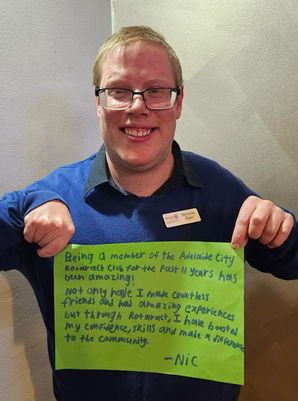 Nicholas
Ryan
Being a member of the Adelaide City
Rotaract Club for the past 11 years has
been amazing!
Not only have I made countless
friends and had amazing experiences
but through Rotaract, I have boosted
my confidence, skills and made a difference
to the community.
-Nic